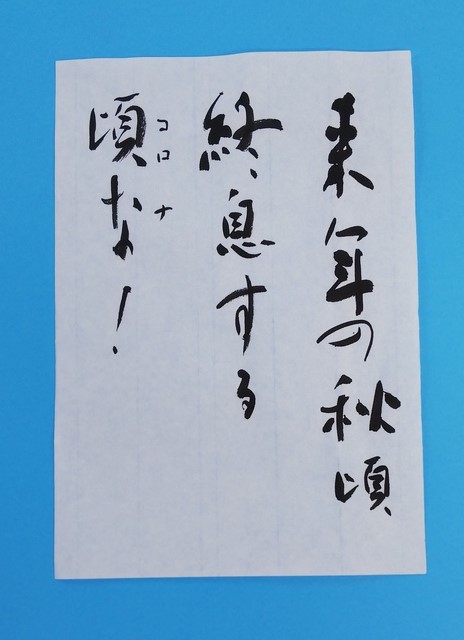 来年の秋頃
終息する
頃な！
コロナ